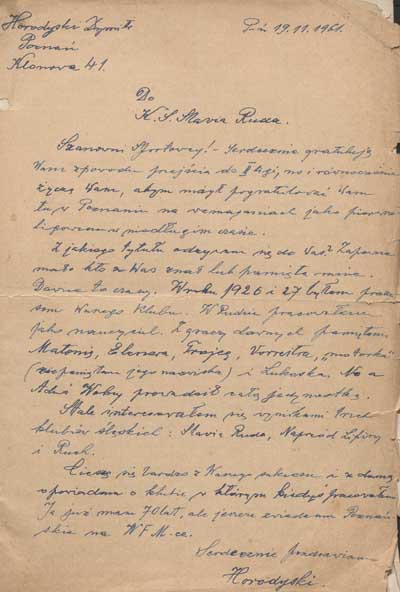 Horodyski Zygm
Poznań
Klonowa 41.
Pń 19.11.1961.
Do
K.S. Slavia Ruda.
Szanowni Sportowcy! – Serdecznie gratuluję
Wam z powodu przejścia do II ligi, no i równocześnie
życzę Wam, abym mógł pogratulować Wam
tu w Poznaniu na zawodach jako pierwszo-
ligowcom w niedługim czasie.
Z jakiego tytułu odzywam się do Was? Zapewne
mało kto z Was znał lub pamięta mnie.
Dawne to czasy. W roku 1926 i 27 byłem preze-
sem Waszego klubu. W Rudzie pracowałem
jako nauczyciel. Z graczy dawnych pamiętam
Matonia, Frojcę,
(nie pamiętam jego nazwiska) i Luboska. No a
prowadził całą jedynastkę.
Stale interesowałem się wynikami trzech
klubów śląskich: Slavia Ruda, Naprzód Lipiny
i Ruch.
Cieszę się bardzo z Waszego sukcesu i z dumą
opowiadam o klubie w którym kiedyś pracowałem
Ja już mam 70 lat, ale jeszcze zwiedzam Poznań-
skie na WFM-ce.
Serdecznie pozdrawiam
Horodyski.